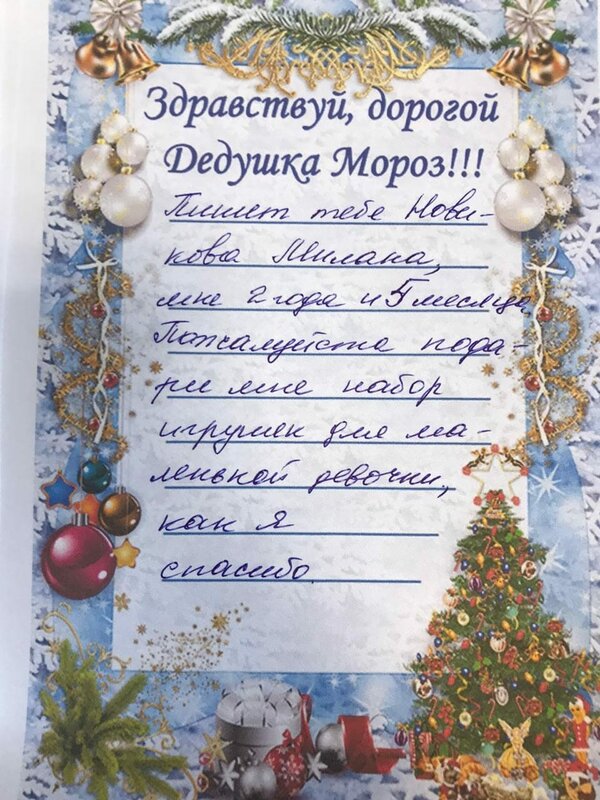 Здравствуй, дорогой
Дедушка Мороз!!!
Пишет тебе Нови-
кова Милана,
мне 2 года и 5 месяца
Пожалуйста пода-
ри мне набор
игрушек для ма-
ленькой девочки,
как я
спасибо.